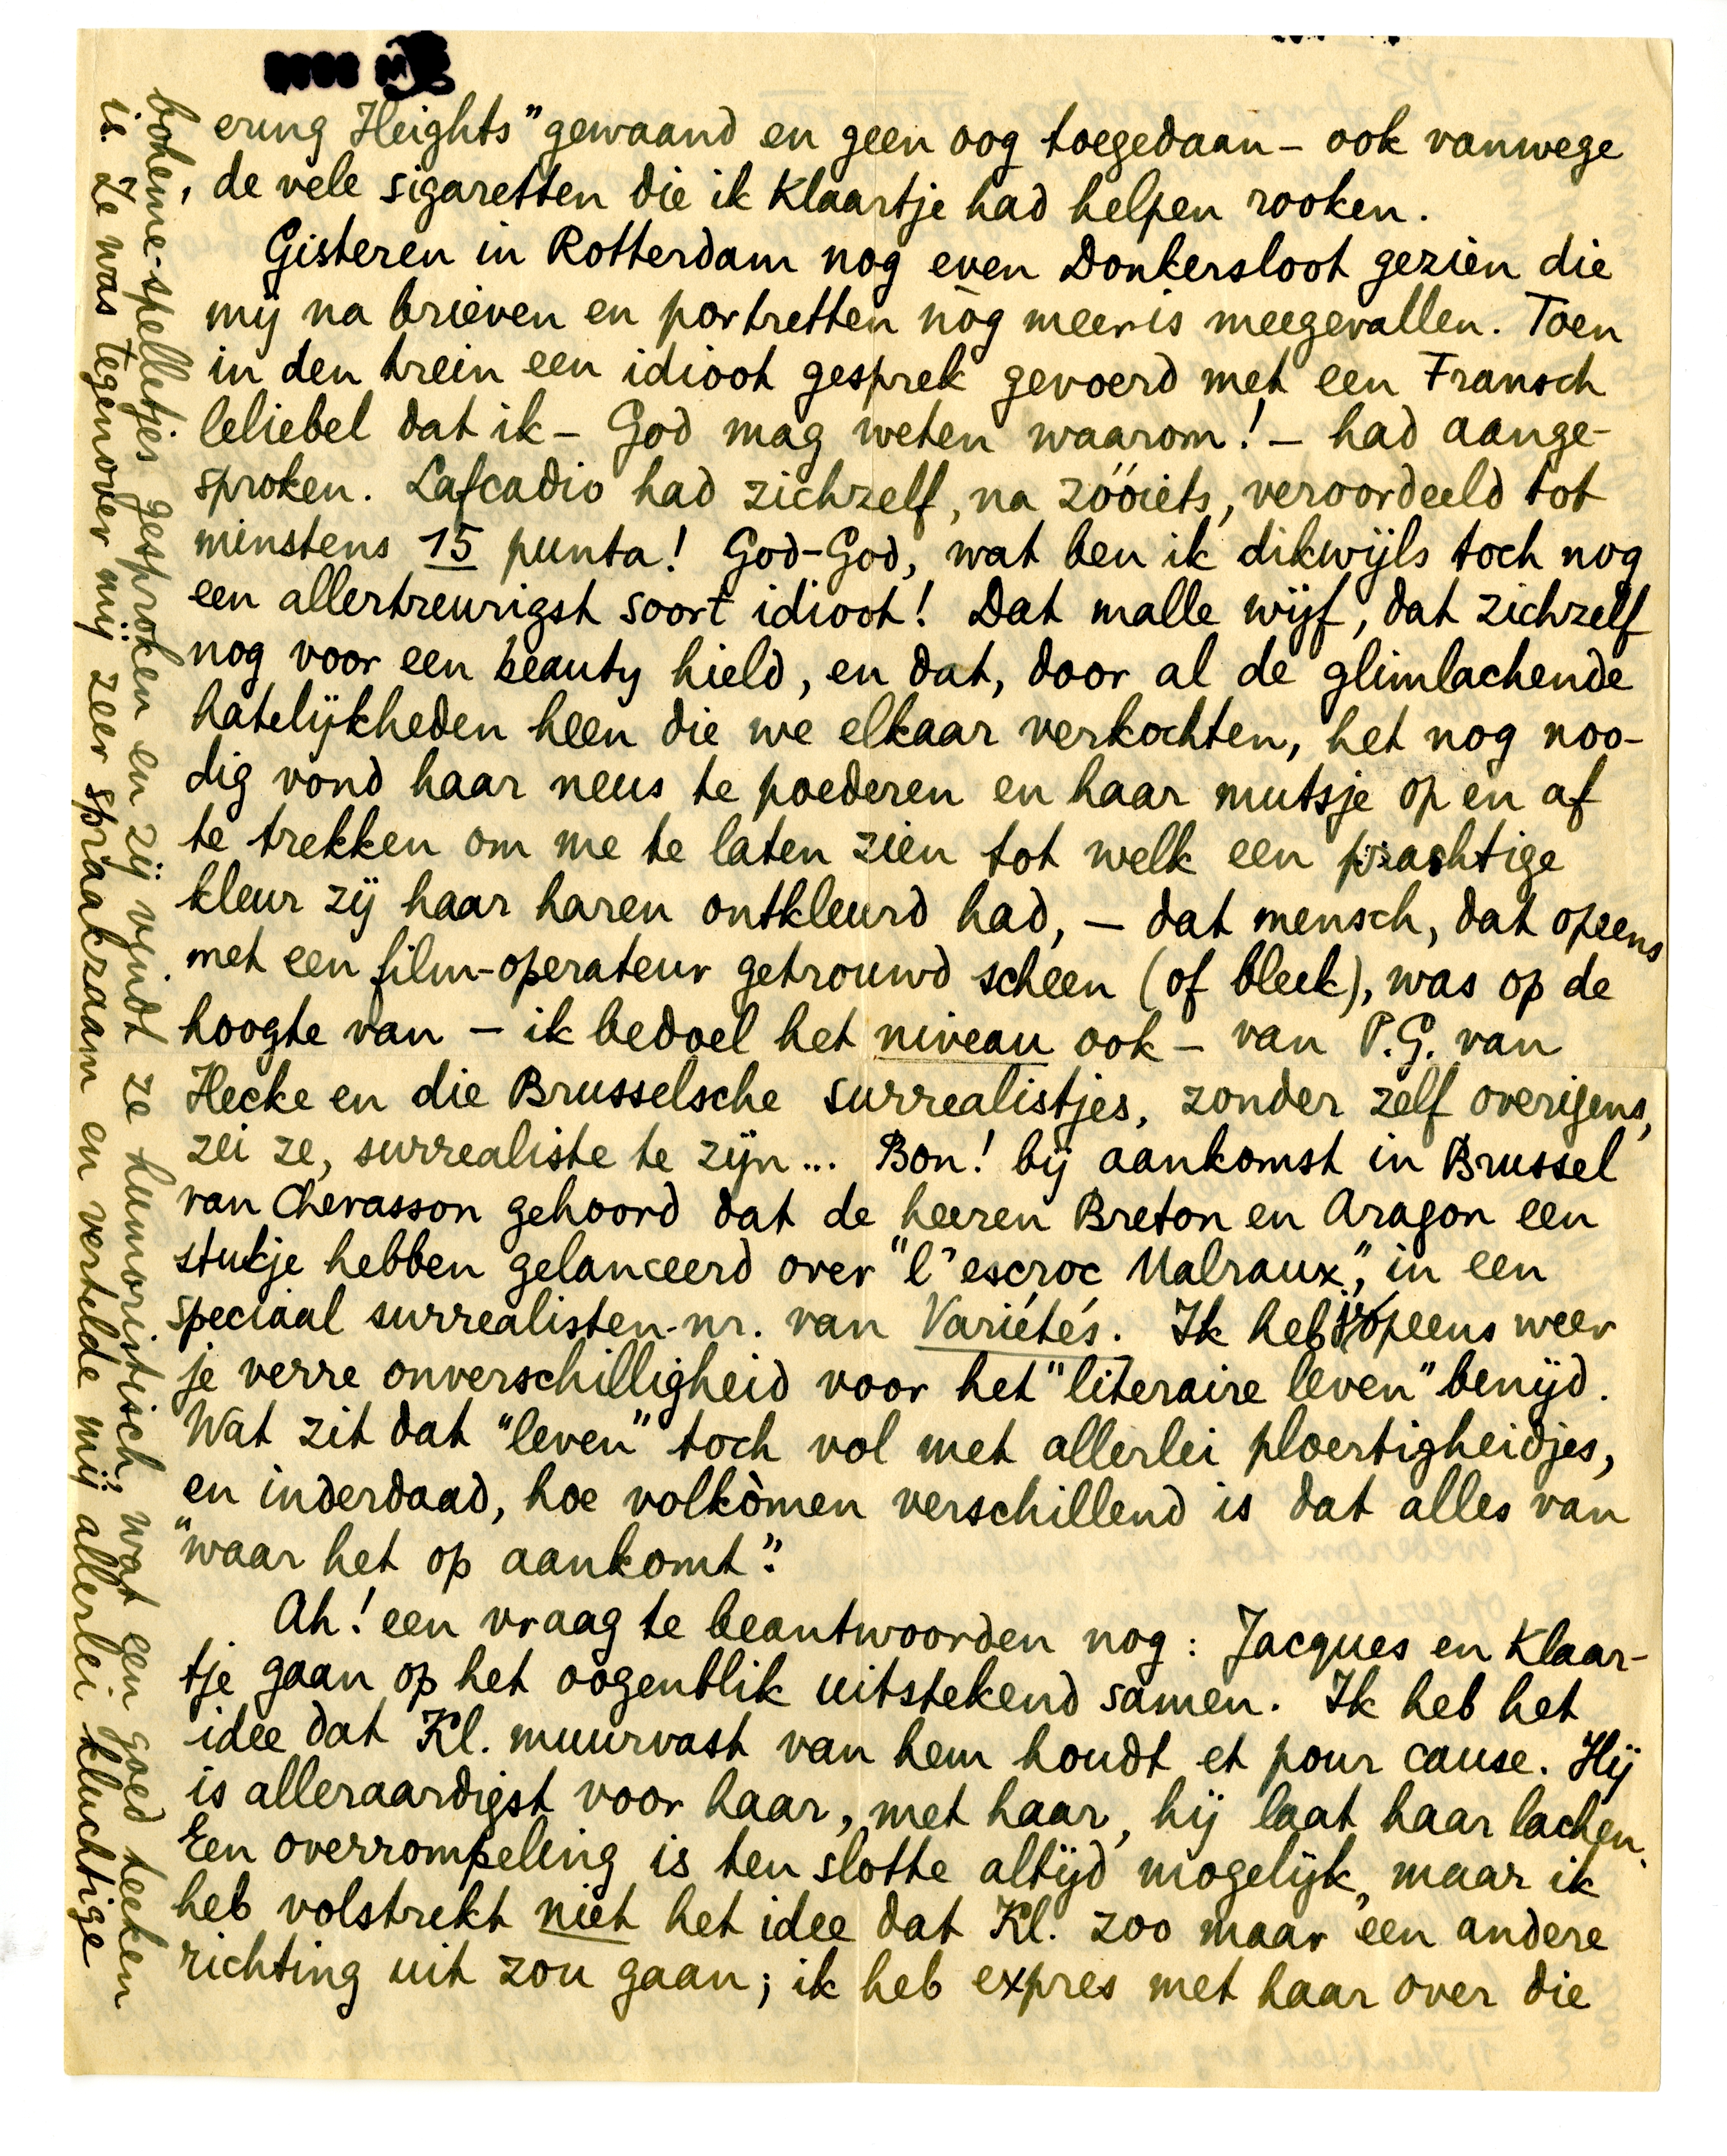 ering Heights" gewaand en geen oog toegedaan – ook vanwege
de vele sigaretten die ik Klaartje had helpen rooken.
Gisteren in Rotterdam nog even Donkersloot gezien die
mij na brieven en portretten nòg meer is meegevallen. Toen
in den trein een idioot gesprek gevoerd met een Fransch
leliebel dat ik – God mag weten waarom! – had aange-
sproken. Lafcadio had zichzelf, na zóóiets, veroordeeld tot
minstens 15 punta! God-God, wat ben ik dikwijls toch nog
een allertreurigst soort idioot! Dat malle wijf, dat zichzelf
nog voor een beauty hield, en dat, door al de glimlachende
hatelijkheden heen die we elkaar verkochten, het nog noo-
dig vond haar neus te poederen en haar mutsje op en af
te trekken om me te laten zien tot welk een prachtige
kleur zij haar haren ontkleurd had, – dat mensch, dat opeens
met een film-operateur getrouwd scheen (of bleek), was op de
hoogte van – ik bedoel het niveau ook – van P.G. van
Hecke en die Brusselsche surrealistjes, zonder zelf overigens,
zei ze, surrealiste te zijn... Bon! bij aankomst in Brussel
van Chevasson gehoord dat de heeren Breton en Aragon een
stukje hebben gelanceerd over "l'escroc Malraux", in een
speciaal surrealisten-nr. van Variétés. Ik heb opeens weer
je verre onverschilligheid voor het "literaire leven" benijd.
Wat zit dat "leven" toch vol met allerlei ploertigheidjes,
en inderdaad, hoe volkòmen verschillend is dat alles van
"waar het op aankomt".
Ah! een vraag te beantwoorden nog: Jacques en Klaar-
tje gaan op het oogenblik uitstekend samen. Ik heb het
idee dat Kl. muurvast van hem houdt et pour cause. Hij
is alleraardigst voor haar, met haar, hij laat haar lachen.
Een overrompeling is ten slotte altijd mogelijk, maar ik
heb volstrekt niet het idee dat Kl. zoo maar een andere
richting uit zou gaan; ik heb expres met haar over die
bohème-spelletjes gesproken en zij vindt ze humoristisch, wat een goed teeken
is. Ze was tegenover mij zeer spraakzaam en vertelde mij allerlei kluchtige